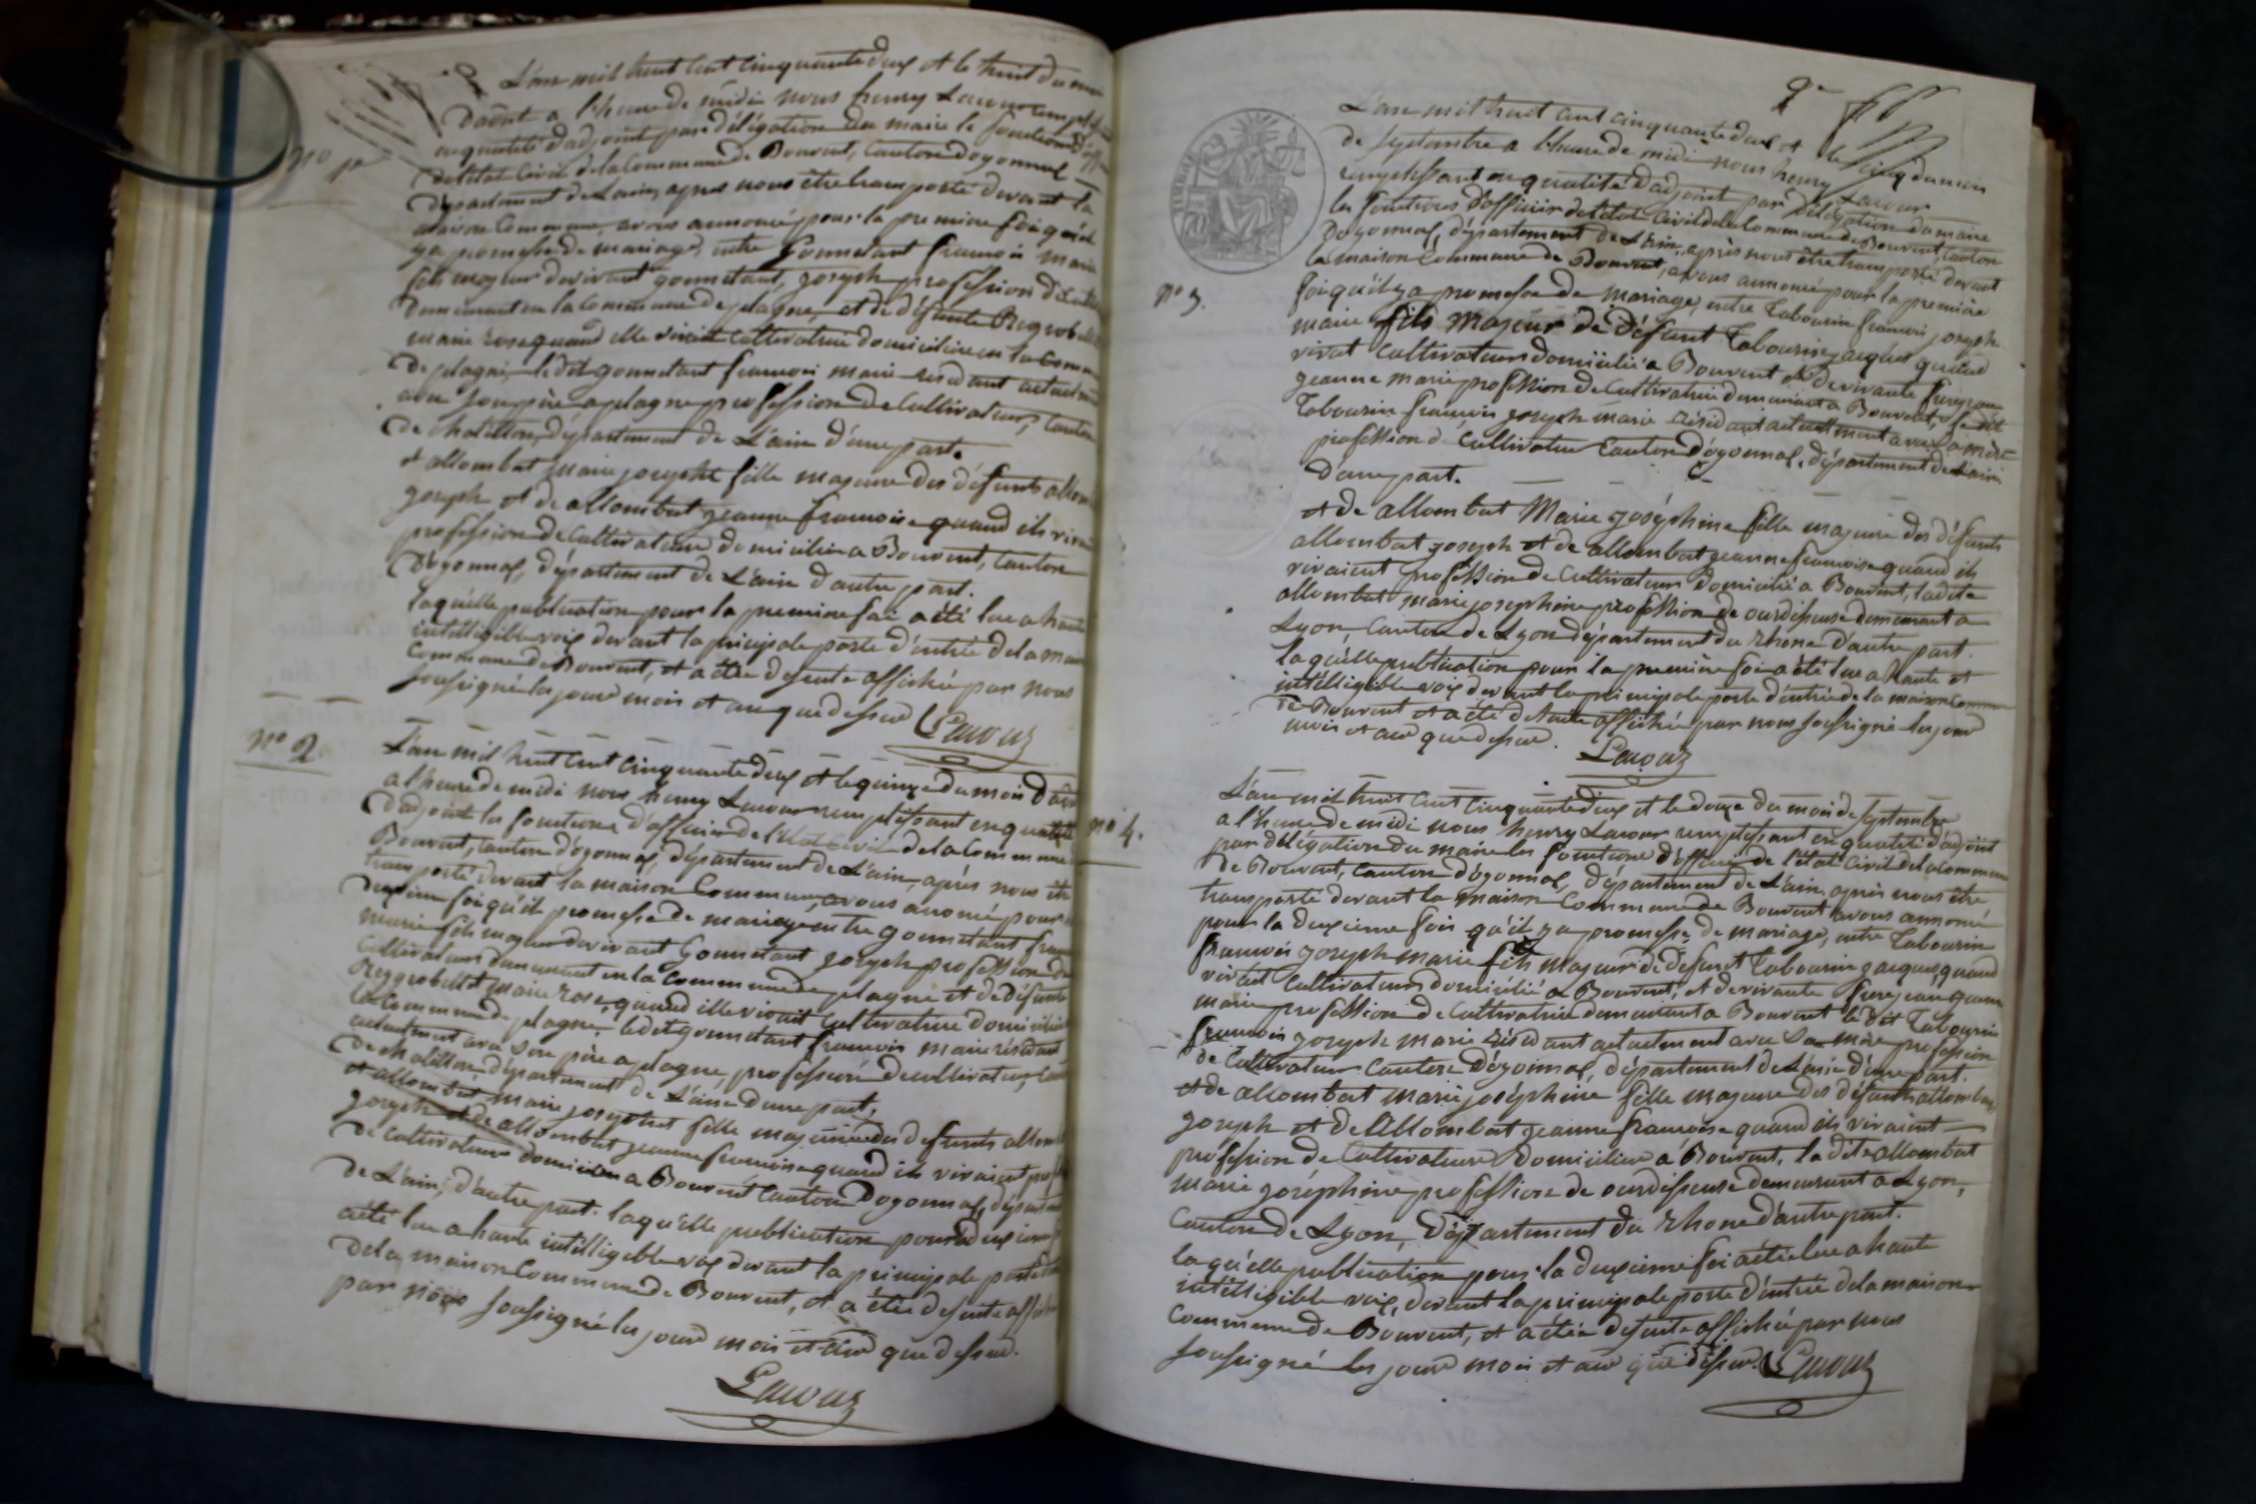 L'an mil huit cent cinquante deux et le huit du mois
D'août a l'heure de midi nous henry Lacour
en qualité d'adjoint par délégation du maire le fonctions
de l'état Civil de la Commune de Bouvent, Canton d'oyonnas
département de L'ain, apres nous être transporté devant la
maison Commune, avons annoncé pour la premiere fois qu'il
ya promesse de mariage, entre Gonnetant francois marie
fils majeur de vivant gonnetant, joseph profession de
demeurant en la Commune de plagne, et de défunte
marie rose quand elle vivait Cultivatrice domiciliée en la Comm
De plagne, le dit gonnetant francois marie résidant actuel
avec son père a plagne profession de Cultivateur, Canton
De Chatillon, département de L'ain D'une part.
et allombat marie josephte fille majeure des défunts allom
joseph et de allombat jeanne francoise quand ils viv
profession de Cultivateurs domiciliés a Bouvent, Canton
D'oyonnas, département de L'ain d'autre part.
laquélle publication pour la premiere foi a été lue a haute
intélligible voix devant la principale porte d'entrée de la mai
Commune de Bouvent, et a étée desuite affiché par nous
soussigné les jour mois et an que dessus Lacour
n° 1er
n° 2
L'an mil huit cent cinquante deux et le quinze du mois D'août
a l'heure de midi nous henry Lacour remplissant en qualité
D'adjoint les fonctions d'officier de l'état Civil de la Commune
Bouvent, Canton d'oyonnas, département de L'ain, après nous être
transporté devant la maison Commune, avons anoncé pour
deuxieme foi qu'il promesse de mariage entre gonnetant franc
marie fils majeur de vivant Gonnetant joseph profession de
Cultivateur demeurant en la Commune de plagne et de Défunte
marie rose, quand elle vivait Cultivatrice domiciliée
la Commune de plagne, le dit gonnetant francois marie résidant
actuelment avec son père a plagne, profession de cultivateur, Can
De chatillon, département de L'ain D'une part,
et allombat marie josephte fille majeure des défunts allom
joseph et de allombat jeanne francoise quand ils vivaient prof
De Cultivateurs domiciliés a Bouvent Canton D'oyonnas, départ
De L'ain, d'autre part. laquélle publication pour la deuxieme
a été lue a haute intélligible voix devant la principale porte
De la maison Commune de Bouvent, et a étée desuite affi
par nous soussigné les jour mois et an que dessus.
Lacour
2e
L'an mil huit cent cinquante deux et le cinq du mois
de septembre a l'heure de midi nous henry Lacour
remplissant en qualité D'adjoint par délégation du maire
les fonctions D'officier de l'état Civil de la Commune de Bouvent, Canton
D'oyonnas, département de L'ain, après nous être transporté devant
la maison Commune de Bouvent, avons annoncé pour la première
n° 3.
foi qu'il ya promesse de mariage, entre Tabourin francois joseph
marie fils majeur de Défunt Tabourin jacques quand
vivait Cultivateur domicilié a Bouvent et de vivante
jeanne marie profession de Cultivatrice demeurant a Bouvent, le dit
Tabourin francois joseph marie résidant actuelment avec sa mère
profession de Cultivateur Canton D'oyonnas, département de L'ain
D'une part.
et de allombat Marie joséphine fille majeure des défunts
allombat joseph et de allombat jeanne francoise quand ils
vivaient profession de Cultivateurs domicilié a Bouvent, la dite
allombat marie josephine profession de ourdisseuse demeurant a
Lyon, Canton de Lyon département du rhone D'autre part.
laquélle publication pour la première foi a été lue a haute et
intélligible voix devant la principale porte d'entrée de la maison Commune
de Bouvent et a été desuite affichée par nous soussigné les jour
mois et an que dessus.
Lacour
n° 4.
L'an mil huit cent cinquante deux et le douze du mois de septembre
a l'heure de midi nous henry Lacour remplissant en qualité d'adjoint
par délégation du maire les fonctions d'officier de l'état Civil de la Commune
de Bouvent, Canton D'oyonnas, département de L'ain, après nous être
transporté devant la maison Commune de Bouvent avons annoncé
pour la deuxieme fois qu'il ya promesse de mariage, entre Tabourin
francois joseph marie fils majeur de défunt Tabourin jacques, quand
vivait Cultivateur domicilié a Bouvent, et de vivante
marie profession de Cultivatrice demeurant a Bouvent le dit Tabourin
francois joseph marie résidant actuelment avec sa mère profession
de Cultivateur Canton D'oyonnas, département de L'ain D'une part.
et de allombat marie joséphine fille majeure des défunts allombat,
joseph et de allombat jeanne francoise quand ils vivaient
profession de Cultivateurs domiciliés a Bouvent, la dite allombat
marie joséphine profession de ourdisseuse demeurant a Lyon,
Canton de Lyon, Département du rhone d'autre part.
laquélle publication pour la deuxieme foi a été lue a haute
intélligible voix, devant la principale porte d'entrée de la maison
Commune de Bouvent, et a étée desuite affiché par nous
soussigné les jour mois et an que dessus. Lacour